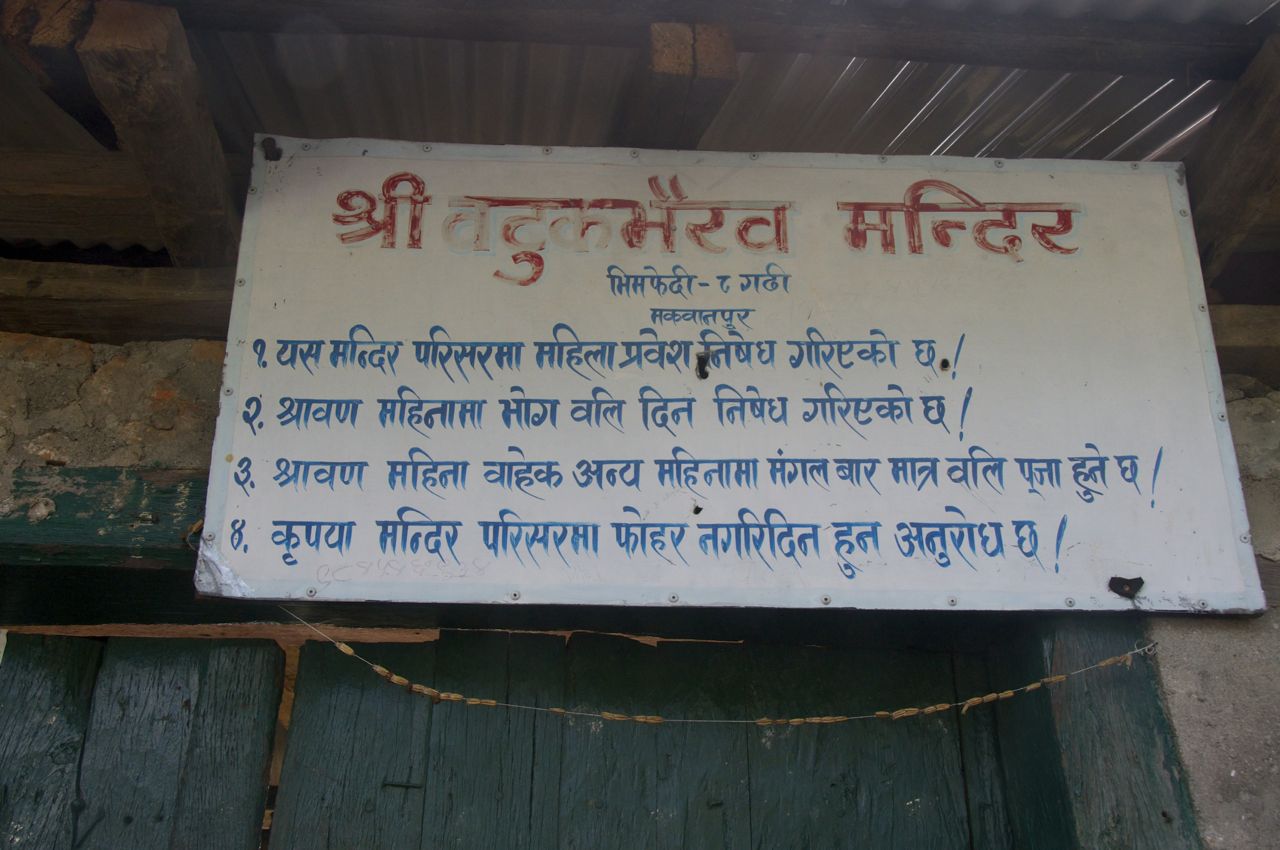 श्री वटुकभैरव मन्दिर
भिमफेदी - ८ गढी
मकवानपुर
१. यस मन्दिर परिसरमा महिला प्रवेश निषेध गरिएको छ !
२. श्रावण महिनामा भोग वलि दिन निषेध गरिएको छ !
३. श्रावण महिना वाहेक अन्य महिनामा मंगल बार मात्र वलि पूजा हुने छ !
४. कृपया मन्दिर परिसरमा फोहर नगरिदिन हुन अनुरोध छ !